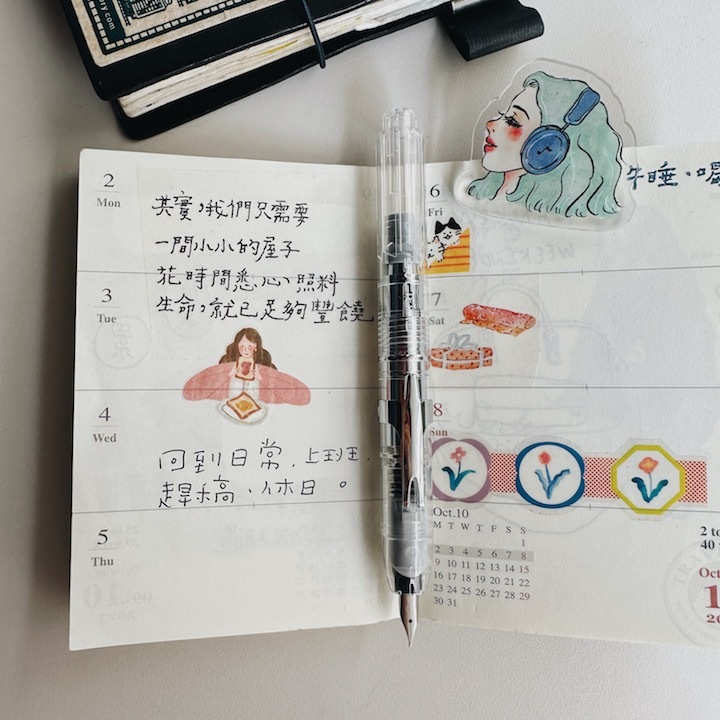 2
Mon
其實,我們只需要
一間小小的屋子
花時間悉心照料
生命,就已足夠豐饒
3
Tue
4
Wed
回到日常.上班.
趕稿、休日。
5
Thu
6
Fri
午睡、
7
Sat
8
Sun
Oct.10
M T W T F S S
1
2 3 4 5 6 7 8
9 10 11 12 13 14 15
16 17 18 19 20 21 22
23 24 25 26 27 28 29
30 31
2 to
40
Oct
1
20
y.com